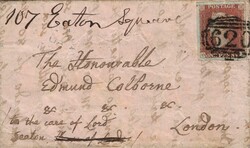 107 Eaton Square
The Honourable
Edmund Colborne
&c &c &c
in the care of Lord
Seaton
London.
620